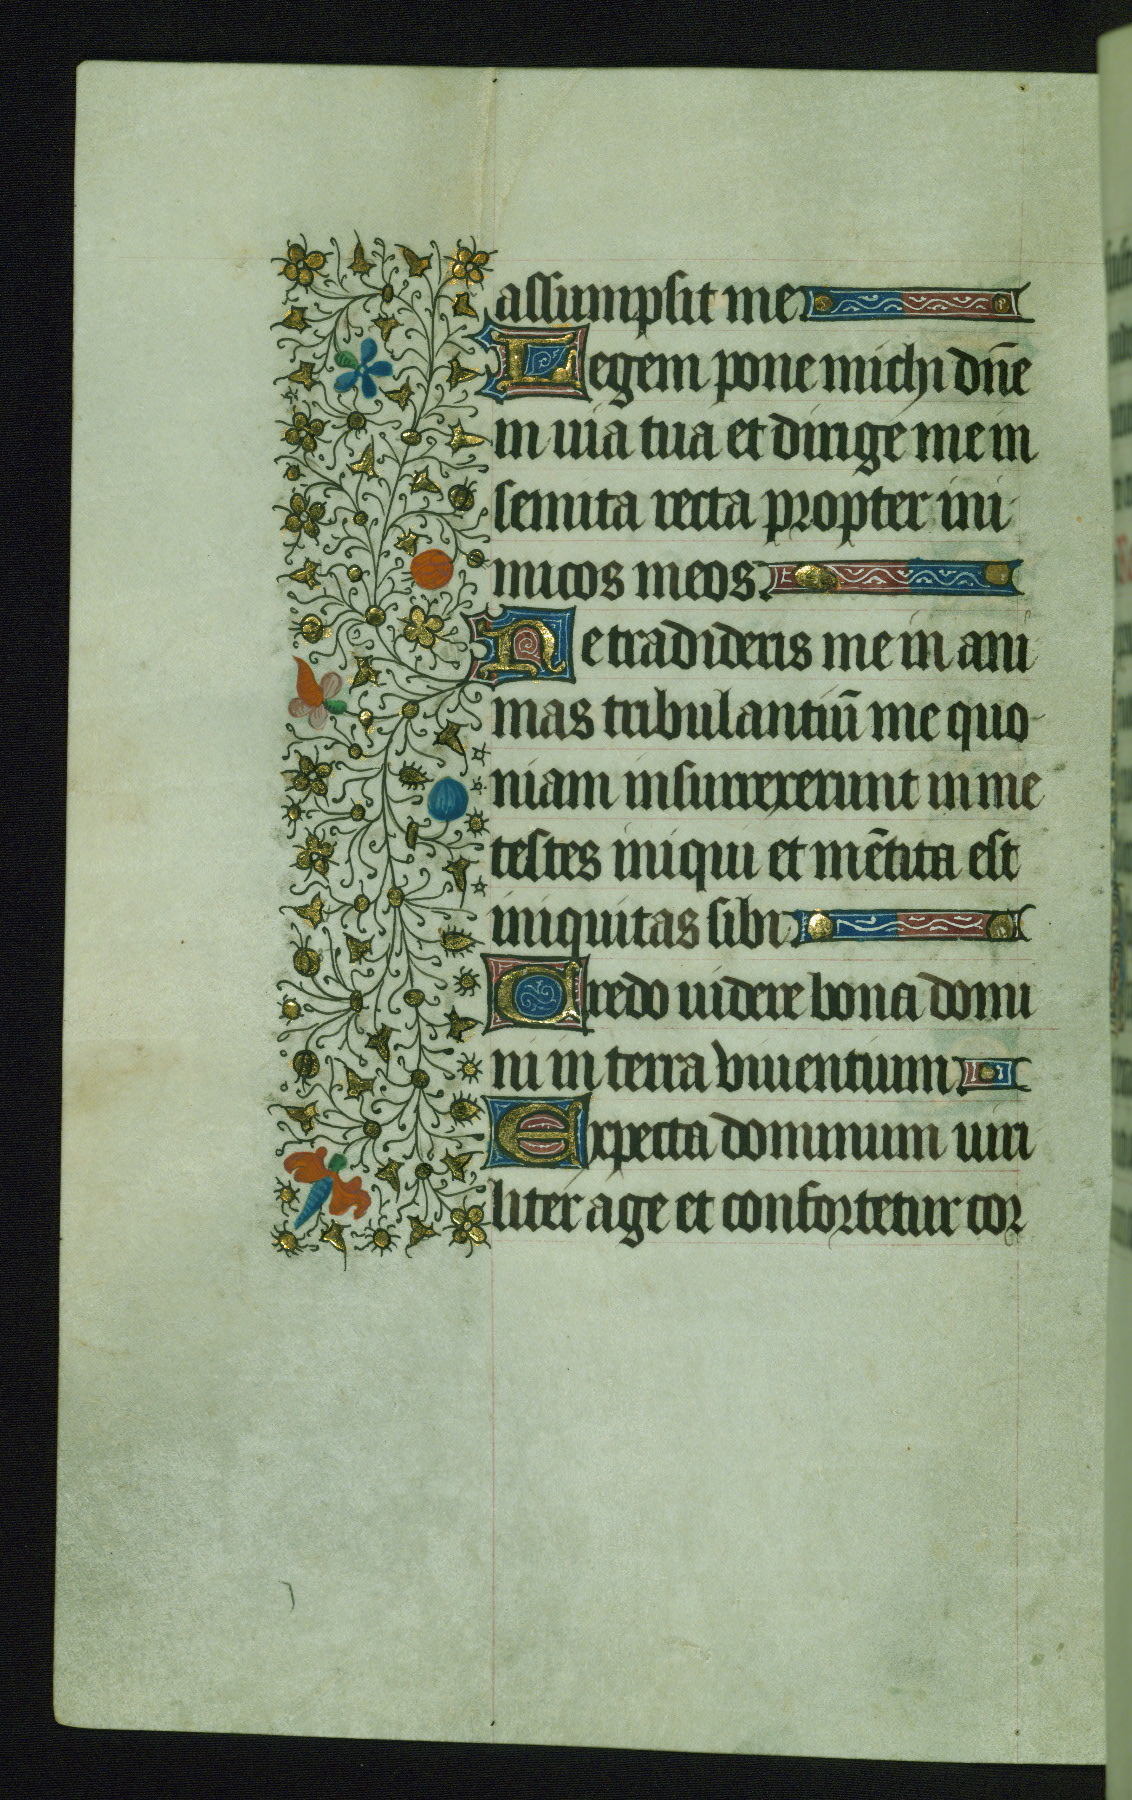 assumpsit me
Legem pone michi dn̄e
in uia tua et dirige me in
semita recta propter ini
micos meos
Ne tradideris me in ani
mas tribulantiū me quo
niam insurrexerunt in me
testes iniqui et mētita est
iniquitas sibi
Credo uidere bona domi
ni in terra viuentium
Expecta dominum uiri
liter age et confortetur cor